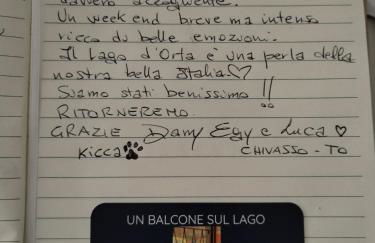 davvero accogliente.
Un week end breve ma intenso
ricco di belle emozioni.
Il Lago d'Orta e' una perla della
nostra bella Italia♡
Siamo stati benissimo !!
RITORNEREMO
GRAZIE Dany Egy e Luca ♡
KICCA🐾 CHIVASSO - TO
UN BALCONE SUL LAGO